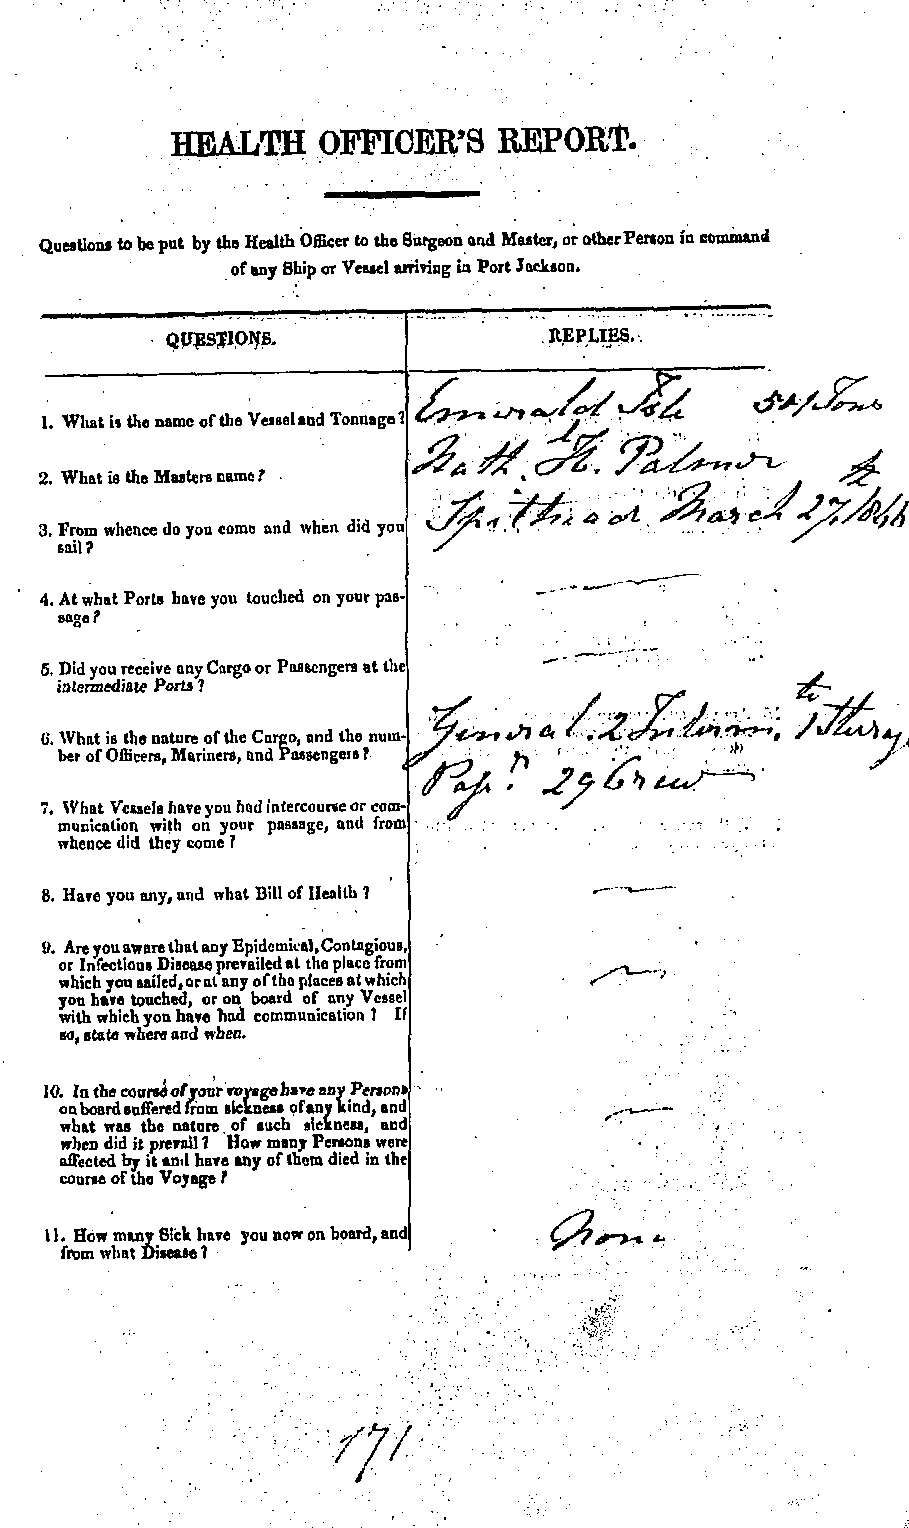 HEALTH OFFICER'S REPORT.
Questions to be put by the Health Officer to the Surgeon and Master, or other Person in command
of any Ship or Vessel arriving in Port Jackson.
QUESTIONS.
REPLIES.
1. What is the name of the Vessel and Tonnage?
Emerald Isle 501 Tons
2. What is the Masters name?
Nath. H. Palmer
3. From whence do you come and when did you
sail?
Spithead March 27
4. At what Ports have you touched on your pas-
sage?
5. Did you receive any Cargo or Passengers at the
intermediate Ports?
6. What is the nature of the Cargo, and the num-
ber of Officers, Mariners, and Passengers?
General. 2 Interm. 1 Steerg
Pasr. 29 Crew
7. What Vessels have you had intercourse or com-
munication with on your passage, and from
whence did they come?
8. Have you any, and what Bill of Health?
9. Are you aware that any Epidemical, Contagious,
or Infectious Disease prevailed at the place from
which you sailed, or at any of the places at which
you have touched, or on board of any Vessel
with which you have had communication? If
so, state where and when.
10. In the course of your voyage have any Persons
on board suffered from sickness of any kind, and
what was the nature of such sickness, and
when did it prevail? How many Persons were
affected by it and have any of them died in the
course of the Voyage?
11. How many Sick have you now on board, and
from what Disease?
None
171